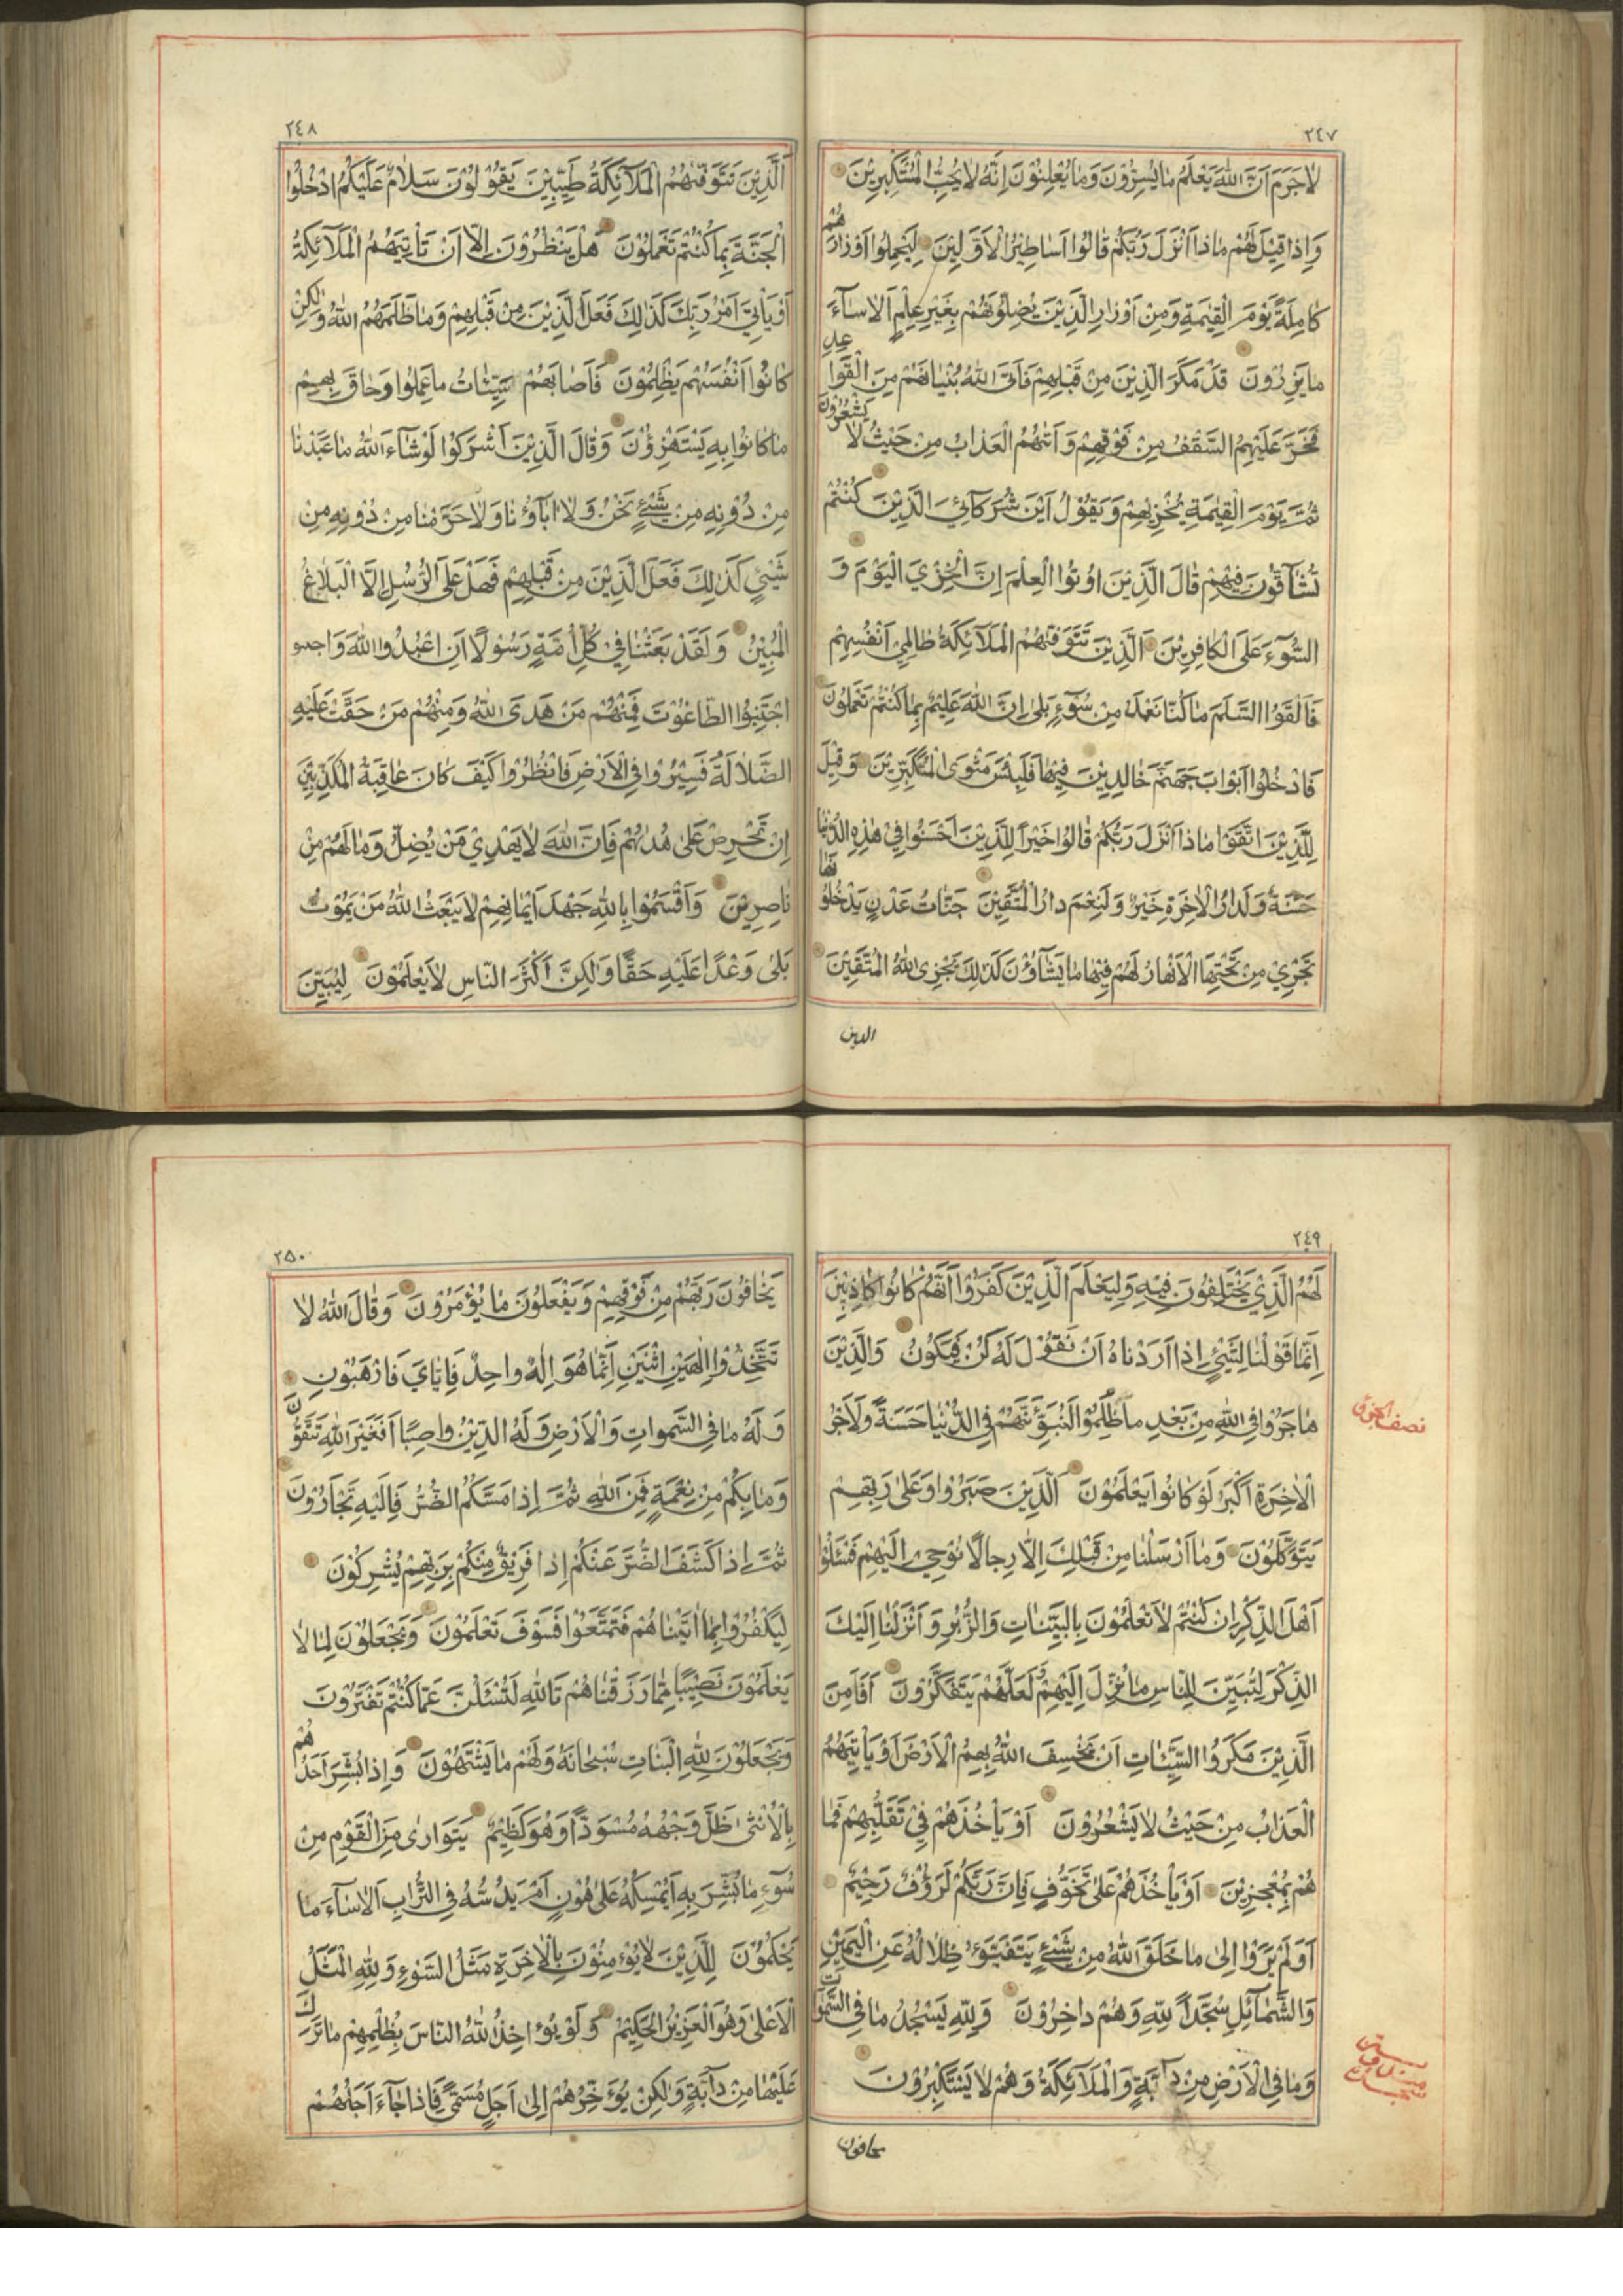 ٢٤٧
لاٰجَرَمَ اَنَّ اللّٰهَ يَعْلَمُ مٰا يُسِرُّوْنَ وَمٰا يُعْلِنُوْنَ اِنَّهُ لاٰ يُحِبُّ الْمُسْتَكْبِرِيْنَ
وَاِذٰا قِيْلَ لَهُمْ مٰاذٰا اَنْزَلَ رَبُّكُمْ قٰالُوا اَسٰاطِيْرُ الْاَوَّلِيْنَ لِيَحْمِلُوا اَوْزٰارَهُمْ
كٰامِلَةً يَوْمَ الْقِيٰمَةِ وَمِنْ اَوْزٰارِ الَّذِيْنَ يُضِلُّوْنَهُمْ بِغَيْرِ عِلْمٍ اَلاٰ سٰآءَ
مٰا يَزِرُوْنَ قَدْ مَكَرَ الَّذِيْنَ مِنْ قَبْلِهِمْ فَاَتَى اللّٰهُ بُنْيٰانَهُمْ مِنَ الْقَوٰاعِدِ
فَخَرَّ عَلَيْهِمُ السَّقْفُ مِنْ فَوْقِهِمْ وَاَتٰهُمُ الْعَذٰابُ مِنْ حَيْثُ لاٰ يَشْعُرُوْنَ
ثُمَّ يَوْمَ الْقِيٰمَةِ يُخْزِيْهِمْ وَيَقُوْلُ اَيْنَ شُرَكٰآئِيَ الَّذِيْنَ كُنْتُمْ
تُشٰآقُّوْنَ فِيْهِمْ قٰالَ الَّذِيْنَ اُوتُوا الْعِلْمَ اِنَّ الْخِزْيَ الْيَوْمَ وَ
السُّوٓءَ عَلَى الْكٰافِرِيْنَ اَلَّذِيْنَ تَتَوَفّٰهُمُ الْمَلآٰئِكَةُ ظٰالِمِيْ اَنْفُسِهِمْ
فَاَلْقَوُا السَّلَمَ مٰا كُنّٰا نَعْمَلُ مِنْ سُوٓءٍ بَلىٰ اِنَّ اللّٰهَ عَلِيْمٌ بِمٰا كُنْتُمْ تَعْمَلُوْنَ
فَادْخُلُوا اَبْوٰابَ جَهَنَّمَ خٰالِدِيْنَ فِيْهٰا فَلَبِئْسَ مَثْوَى الْمُتَكَبِّرِيْنَ وَقِيْلَ
لِلَّذِيْنَ اتَّقَوْا مٰاذٰا اَنْزَلَ رَبُّكُمْ قٰالُوا خَيْراً لِلَّذِيْنَ اَحْسَنُوا فِيْ هٰذِهِ الدُّنْيٰا
حَسَنَةٌ وَلَدٰارُ الْاٰخِرَةِ خَيْرٌ وَلَنِعْمَ دٰارُ الْمُتَّقِيْنَ جَنّٰاتُ عَدْنٍ يَدْخُلُوْنَهٰا
تَجْرِيْ مِنْ تَحْتِهَا الْاَنْهٰارُ لَهُمْ فِيْهٰا مٰا يَشٰآؤُنَ كَذٰلِكَ يَجْزِي اللّٰهُ الْمُتَّقِيْنَ
الدين
٢٤٨
اَلَّذِيْنَ تَتَوَفّٰهُمُ الْمَلآٰئِكَةُ طَيِّبِيْنَ يَقُوْلُوْنَ سَلاٰمٌ عَلَيْكُمُ ادْخُلُوا
الْجَنَّةَ بِمٰا كُنْتُمْ تَعْمَلُوْنَ هَلْ يَنْظُرُوْنَ اِلاّٰ اَنْ تَأْتِيَهُمُ الْمَلآٰئِكَةُ
اَوْ يَأْتِيَ اَمْرُ رَبِّكَ كَذٰلِكَ فَعَلَ الَّذِيْنَ مِنْ قَبْلِهِمْ وَمٰا ظَلَمَهُمُ اللّٰهُ وَلٰكِنْ
كٰانُوا اَنْفُسَهُمْ يَظْلِمُوْنَ فَاَصٰابَهُمْ سَيِّئٰاتُ مٰا عَمِلُوا وَحٰاقَ بِهِمْ
مٰا كٰانُوا بِهِ يَسْتَهْزِؤُنَ وَقٰالَ الَّذِيْنَ اَشْرَكُوا لَوْ شٰآءَ اللّٰهُ مٰا عَبَدْنٰا
مِنْ دُوْنِهِ مِنْ شَيْءٍ نَحْنُ وَلاٰ اٰبٰآؤُنٰا وَلاٰ حَرَّمْنٰا مِنْ دُوْنِهِ مِنْ
شَيْءٍ كَذٰلِكَ فَعَلَ الَّذِيْنَ مِنْ قَبْلِهِمْ فَهَلْ عَلَى الرُّسُلِ اِلَّا الْبَلاٰغُ
الْمُبِيْنُ وَلَقَدْ بَعَثْنٰا فِيْ كُلِّ اُمَّةٍ رَسُوْلًا اَنِ اعْبُدُوا اللّٰهَ وَ
اجْتَنِبُوا الطّٰاغُوْتَ فَمِنْهُمْ مَنْ هَدَى اللّٰهُ وَمِنْهُمْ مَنْ حَقَّتْ عَلَيْهِ
الضَّلاٰلَةُ فَسِيْرُوا فِي الْاَرْضِ فَانْظُرُوا كَيْفَ كٰانَ عٰاقِبَةُ الْمُكَذِّبِيْنَ
اِنْ تَحْرِصْ عَلىٰ هُدٰىهُمْ فَاِنَّ اللّٰهَ لاٰ يَهْدِيْ مَنْ يُضِلُّ وَمٰا لَهُمْ مِنْ
نٰاصِرِيْنَ وَاَقْسَمُوْا بِاللّٰهِ جَهْدَ اَيْمٰانِهِمْ لاٰ يَبْعَثُ اللّٰهُ مَنْ يَمُوْتُ
بَلىٰ وَعْدًا عَلَيْهِ حَقًّا وَلٰكِنَّ اَكْثَرَ النّٰاسِ لاٰ يَعْلَمُوْنَ لِيُبَيِّنَ
٢٤٩
لَهُمُ الَّذِيْ يَخْتَلِفُوْنَ فِيْهِ وَلِيَعْلَمَ الَّذِيْنَ كَفَرُوْا اَنَّهُمْ كٰانُوا كٰاذِبِيْنَ
اِنَّمٰا قَوْلُنٰا لِشَيْءٍ اِذٰا اَرَدْنٰاهُ اَنْ نَقُوْلَ لَهُ كُنْ فَيَكُوْنُ وَالَّذِيْنَ
هٰاجَرُوْا فِي اللّٰهِ مِنْ بَعْدِ مٰا ظُلِمُوْا لَنُبَوِّئَنَّهُمْ فِي الدُّنْيٰا حَسَنَةً وَلَاَجْرُ
الْاٰخِرَةِ اَكْبَرُ لَوْ كٰانُوا يَعْلَمُوْنَ اَلَّذِيْنَ صَبَرُوا وَعَلىٰ رَبِّهِمْ
يَتَوَكَّلُوْنَ وَمٰا اَرْسَلْنٰا مِنْ قَبْلِكَ اِلاّٰ رِجٰالًا نُوْحِيْ اِلَيْهِمْ فَسْئَلُوْا
اَهْلَ الذِّكْرِ اِنْ كُنْتُمْ لاٰ تَعْلَمُوْنَ بِالْبَيِّنٰاتِ وَالزُّبُرِ وَاَنْزَلْنٰا اِلَيْكَ
الذِّكْرَ لِتُبَيِّنَ لِلنّٰاسِ مٰا نُزِّلَ اِلَيْهِمْ وَلَعَلَّهُمْ يَتَفَكَّرُوْنَ اَفَاَمِنَ
الَّذِيْنَ مَكَرُوا السَّيِّئٰاتِ اَنْ يَخْسِفَ اللّٰهُ بِهِمُ الْاَرْضَ اَوْ يَأْتِيَهُمُ
الْعَذٰابُ مِنْ حَيْثُ لاٰ يَشْعُرُوْنَ اَوْ يَأْخُذَهُمْ فِيْ تَقَلُّبِهِمْ فَمٰا
هُمْ بِمُعْجِزِيْنَ اَوْ يَأْخُذَهُمْ عَلىٰ تَخَوُّفٍ فَاِنَّ رَبَّكُمْ لَرَؤُفٌ رَحِيْمٌ
اَوَلَمْ يَرَوْا اِلىٰ مٰا خَلَقَ اللّٰهُ مِنْ شَيْءٍ يَتَفَيَّؤُ ظِلاٰلُهُ عَنِ الْيَمِيْنِ
وَالشَّمٰآئِلِ سُجَّداً لِلّٰهِ وَهُمْ دٰاخِرُوْنَ وَلِلّٰهِ يَسْجُدُ مٰا فِي السَّمٰوٰاتِ
وَمٰا فِي الْاَرْضِ مِنْ دٰآبَّةٍ وَالْمَلآٰئِكَةُ وَهُمْ لاٰ يَسْتَكْبِرُوْنَ
يخافون
نصف الحزب
٢٥٠
يَخٰافُوْنَ رَبَّهُمْ مِنْ فَوْقِهِمْ وَيَفْعَلُوْنَ مٰا يُؤْمَرُوْنَ وَقٰالَ اللّٰهُ لاٰ
تَتَّخِذُوْا اِلٰهَيْنِ اثْنَيْنِ اِنَّمٰا هُوَ اِلٰهٌ وٰاحِدٌ فَاِيّٰايَ فَارْهَبُوْنِ
وَلَهُ مٰا فِي السَّمٰوٰاتِ وَالْاَرْضِ وَلَهُ الدِّيْنُ وٰاصِبًا اَفَغَيْرَ اللّٰهِ تَتَّقُوْنَ
وَمٰا بِكُمْ مِنْ نِعْمَةٍ فَمِنَ اللّٰهِ ثُمَّ اِذٰا مَسَّكُمُ الضُّرُّ فَاِلَيْهِ تَجْاَرُوْنَ
ثُمَّ اِذٰا كَشَفَ الضُّرَّ عَنْكُمْ اِذٰا فَرِيْقٌ مِنْكُمْ بِرَبِّهِمْ يُشْرِكُوْنَ
لِيَكْفُرُوْا بِمٰا اٰتَيْنٰاهُمْ فَتَمَتَّعُوْا فَسَوْفَ تَعْلَمُوْنَ وَيَجْعَلُوْنَ لِمٰا لاٰ
يَعْلَمُوْنَ نَصِيْبًا مِمّٰا رَزَقْنٰاهُمْ تَاللّٰهِ لَتُسْئَلُنَّ عَمّٰا كُنْتُمْ تَفْتَرُوْنَ
وَيَجْعَلُوْنَ لِلّٰهِ الْبَنٰاتِ سُبْحٰانَهُ وَلَهُمْ مٰا يَشْتَهُوْنَ وَاِذٰا بُشِّرَ اَحَدُهُمْ
بِالْاُنْثىٰ ظَلَّ وَجْهُهُ مُسْوَدًّا وَهُوَ كَظِيْمٌ يَتَوٰارىٰ مِنَ الْقَوْمِ مِنْ
سُوٓءِ مٰا بُشِّرَ بِهِ اَيُمْسِكُهُ عَلىٰ هُوْنٍ اَمْ يَدُسُّهُ فِي التُّرٰابِ اَلاٰ سٰآءَ مٰا
يَحْكُمُوْنَ لِلَّذِيْنَ لاٰ يُؤْمِنُوْنَ بِالْاٰخِرَةِ مَثَلُ السَّوْءِ وَلِلّٰهِ الْمَثَلُ
الْاَعْلىٰ وَهُوَ الْعَزِيْزُ الْحَكِيْمُ وَلَوْ يُؤٰاخِذُ اللّٰهُ النّٰاسَ بِظُلْمِهِمْ مٰا تَرَكَ
عَلَيْهٰا مِنْ دٰآبَّةٍ وَلٰكِنْ يُؤَخِّرُهُمْ اِلىٰ اَجَلٍ مُسَمًّى فَاِذٰا جٰآءَ اَجَلُهُمْ